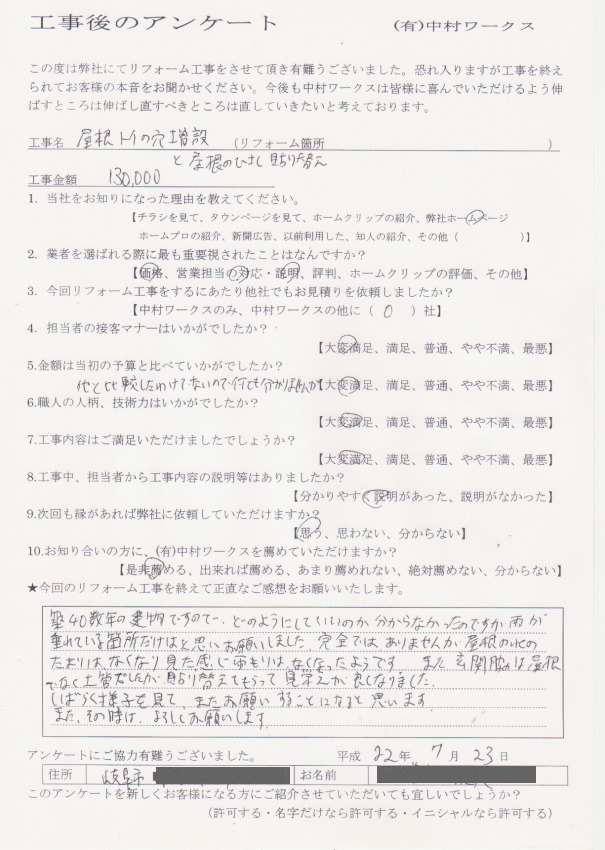 工事後のアンケート　(有)中村ワークス
この度は弊社にてリフォーム工事をさせて頂き有難うございました。恐れ入りますが工事を終え
られてお客様の本音をお聞かせください。今後も中村ワークスは皆様に喜んでいただけるよう伸
ばすところは伸ばし直すべきところは直していきたいと考えております。
工事名　屋根トイの穴増設　(リフォーム箇所　)
と屋根のひさし貼り替え
工事金額　130,000
1. 当社をお知りになった理由を教えてください。
【チラシを見て、タウンページを見て、ホームクリップの紹介、弊社ホームページ
ホームプロの紹介、新聞広告、以前利用した、知人の紹介、その他（　）】
2. 業者を選ばれる際に最も重要視されたことはなんですか？
【価格、営業担当の対応・説明、評判、ホームクリップの評価、その他】
3. 今回リフォーム工事をするにあたり他社でもお見積りを依頼しましたか？
【中村ワークスのみ、中村ワークスの他に（ 0 ）社】
4. 担当者の接客マナーはいかがでしたか？
【大変満足、満足、普通、やや不満、最悪】
5.金額は当初の予算と比べていかがでしたか？
他と比較したわけでないので何とも分かりませんが【大変満足、満足、普通、やや不満、最悪】
6.職人の人柄、技術力はいかがでしたか？
【大変満足、満足、普通、やや不満、最悪】
7.工事内容はご満足いただけましたでしょうか？
【大変満足、満足、普通、やや不満、最悪】
8.工事中、担当者から工事内容の説明等はありましたか？
【分かりやすく説明があった、説明がなかった】
9.次回も縁があれば弊社に依頼していただけますか？
【思う、思わない、分からない】
10.お知り合いの方に、(有)中村ワークスを薦めていただけますか？
【是非薦める、出来れば薦める、あまり薦めれない、絶対薦めない、分からない】
★今回のリフォーム工事を終えて正直なご感想をお願いいたします。
築40数年の建物ですので、どのようにしていいのか分からなかったのですが雨が
垂れている箇所だけはと思いお願いしました。完全ではありませんが屋根の水の
たまりはなくなり見た感じ雨もりはなくなったようです。また玄関脇は屋根
でなく土管でしたが貼り替えてもらって見栄えが良くなりました。
しばらく様子を見て、またお願いすることになると思います
また、その時は、よろしくお願いします。
アンケートにご協力有難うございました。　平成 22 年 7 月 23 日
住所　岐阜市　お名前
このアンケートを新しくお客様になる方にご紹介させていただいても宜しいでしょうか？
（許可する・名字だけなら許可する・イニシャルなら許可する）